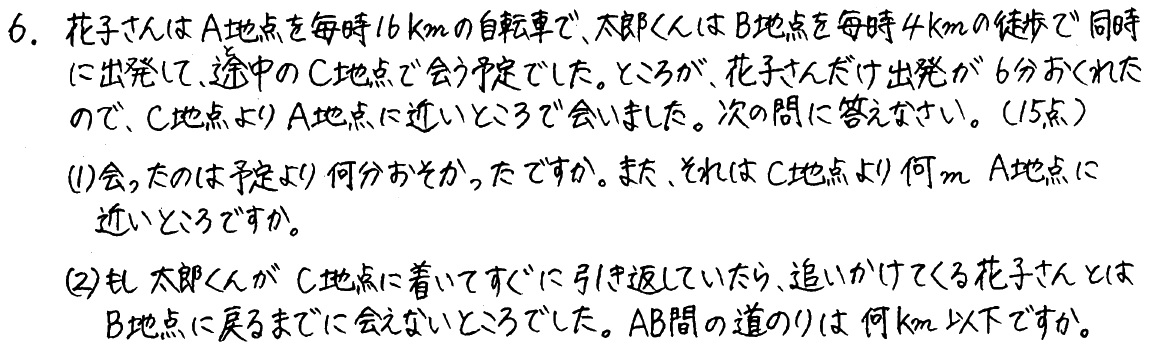 6. 花子さんは A地点を毎時16kmの自転車で、太郎くんは B地点を毎時4kmの徒歩で同時
に出発して、途中の C地点で会う予定でした。ところが、花子さんだけ出発が 6分おくれた
ので、C地点より A地点に近いところで会いました。次の問に答えなさい。(15点)
(1)会ったのは予定より何分おそかったですか。また、それは C地点より何m A地点に
近いところですか。
(2)もし太郎くんが C地点に着いてすぐに引き返していたら、追いかけてくる花子さんとは
B地点に戻るまでに会えないところでした。AB間の道のりは何km以下ですか。